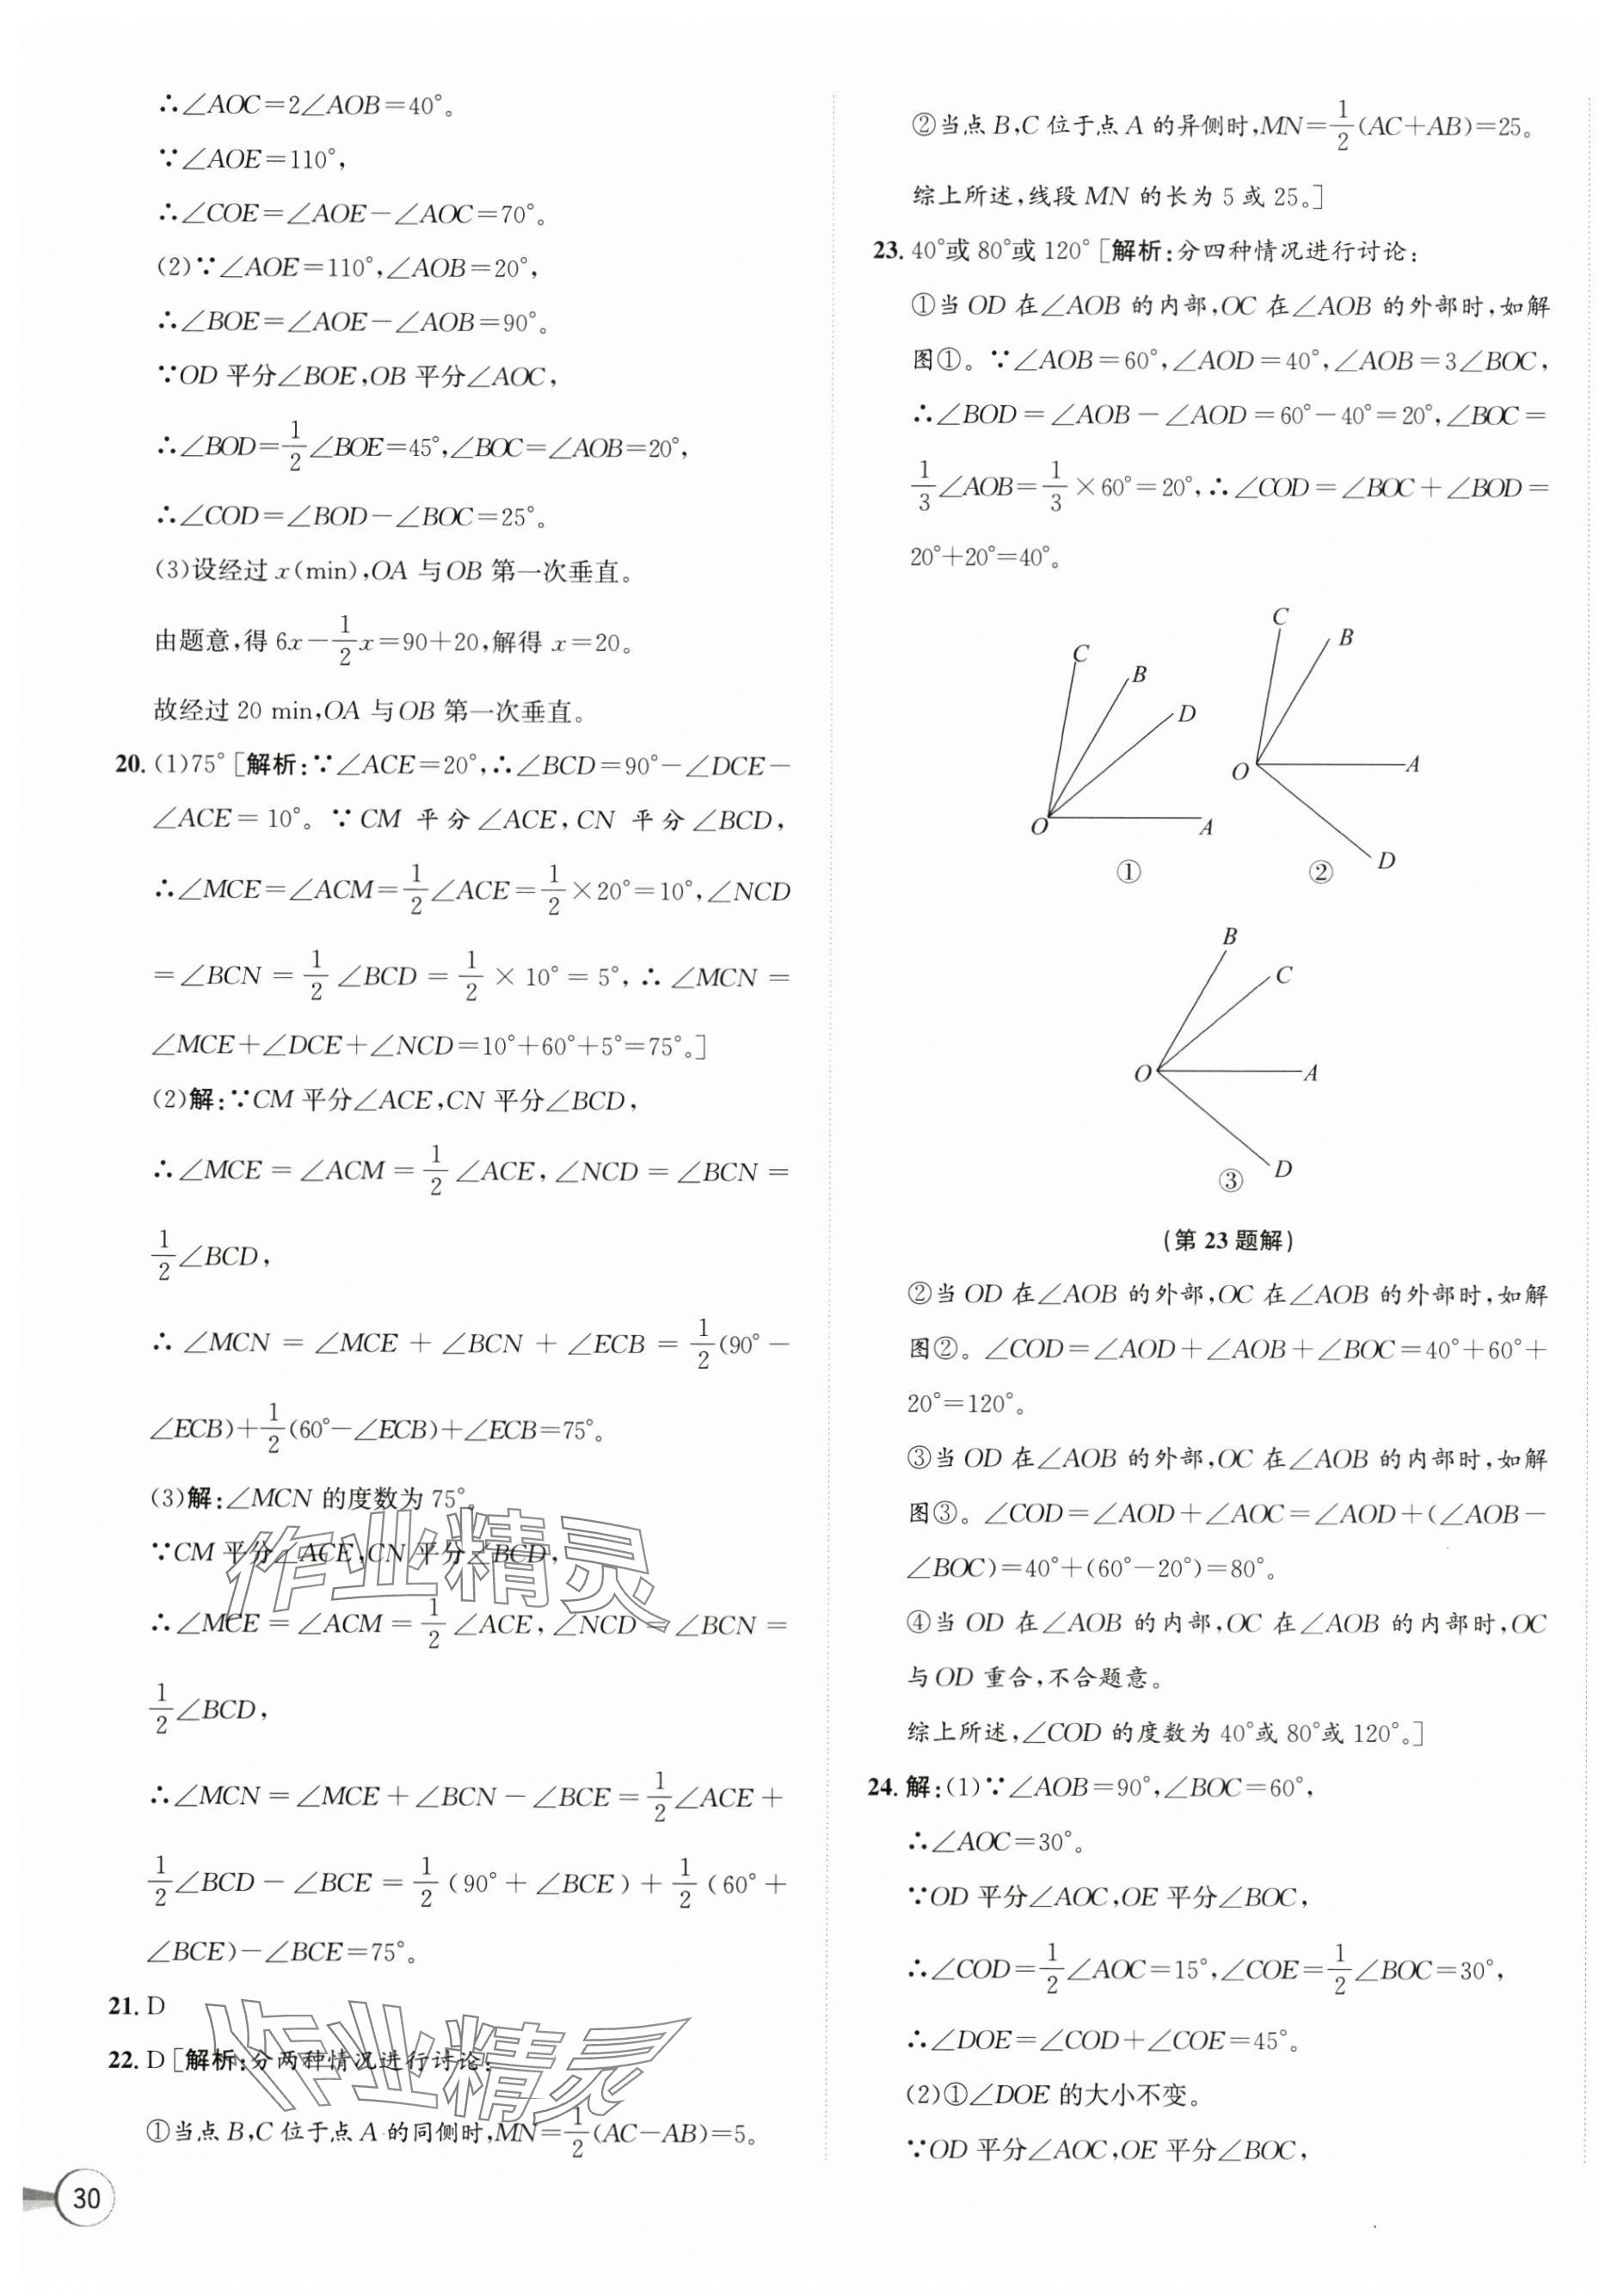 ∴∠AOC=2∠AOB=40°。
∵∠AOE=110°,
∴∠COE=∠AOE-∠AOC=70°。
(2)∵∠AOE=110°,∠AOB=20°,
∴∠BOE=∠AOE-∠AOB=90°。
∵OD 平分∠BOE,OB 平分∠AOC,
∴∠BOD=1/2∠BOE=45°,∠BOC=∠AOB=20°,
∴∠COD=∠BOD-∠BOC=25°。
(3)设经过 x(min),OA 与OB 第一次垂直。
由题意,得 6x-1/2x=90+20,解得 x=20。
故经过 20 min,OA 与OB 第一次垂直。
20. (1)75° [解析:∵∠ACE=20°,∴∠BCD=90°-∠DCE-
∠ACE=10°。∵CM 平分∠ACE,CN 平分∠BCD,
∴∠MCE=∠ACM=1/2∠ACE=1/2×20°=10°,∠NCD
=∠BCN=1/2∠BCD=1/2×10°=5°,∴∠MCN=
∠MCE+∠DCE+∠NCD=10°+60°+5°=75°。]
(2)解:∵CM 平分∠ACE,CN 平分∠BCD,
∴∠MCE=∠ACM=1/2∠ACE,∠NCD=∠BCN=
1/2∠BCD,
∴∠MCN=∠MCE+∠BCN+∠ECB=1/2(90°-
∠ECB)+1/2(60°-∠ECB)+∠ECB=75°。
(3)解:∠MCN 的度数为 75°。
∵CM 平分∠ACE,CN 平分∠BCD,
∴∠MCE=∠ACM=1/2∠ACE,∠NCD=∠BCN=
1/2∠BCD,
∴∠MCN=∠MCE+∠BCN-∠BCE=1/2∠ACE+
1/2∠BCD-∠BCE=1/2(90°+∠BCE)+1/2(60°+
∠BCE)-∠BCE=75°。
作业精灵
21. D
22. D [解析:分两种情况进行讨论:
作业精灵
①当点 B,C 位于点 A 的同侧时,MN=1/2(AC-AB)=5。
30
②当点 B,C 位于点 A 的异侧时,MN=1/2(AC+AB)=25。
综上所述,线段 MN 的长为 5 或 25。]
23. 40°或 80°或 120° [解析:分四种情况进行讨论:
①当 OD 在∠AOB 的内部,OC 在∠AOB 的外部时,如解
图①。∵∠AOB=60°,∠AOD=40°,∠AOB=3∠BOC,
∴∠BOD=∠AOB-∠AOD=60°-40°=20°,∠BOC=
1/3∠AOB=1/3×60°=20°,∴∠COD=∠BOC+∠BOD=
20°+20°=40°。
C
B
D
O
A
①
C
B
O
A
D
②
B
C
O
A
D
③
(第 23 题解)
②当 OD 在∠AOB 的外部,OC 在∠AOB 的外部时,如解
图②。∠COD=∠AOD+∠AOB+∠BOC=40°+60°+
20°=120°。
③当 OD 在∠AOB 的外部,OC 在∠AOB 的内部时,如解
图③。∠COD=∠AOD+∠AOC=∠AOD+(∠AOB-
∠BOC)=40°+(60°-20°)=80°。
④当 OD 在∠AOB 的内部,OC 在∠AOB 的内部时,OC
与OD 重合,不合题意。
综上所述,∠COD 的度数为 40°或 80°或 120°。]
24. 解:(1)∵∠AOB=90°,∠BOC=60°,
∴∠AOC=30°。
∵OD 平分∠AOC,OE 平分∠BOC,
∴∠COD=1/2∠AOC=15°,∠COE=1/2∠BOC=30°,
∴∠DOE=∠COD+∠COE=45°。
(2)①∠DOE 的大小不变。
∵OD 平分∠AOC,OE 平分∠BOC,